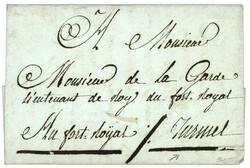 A Monsieur
Monsieur de La Garde
lieutenant de Roy du fort Royal
Au fort Royal